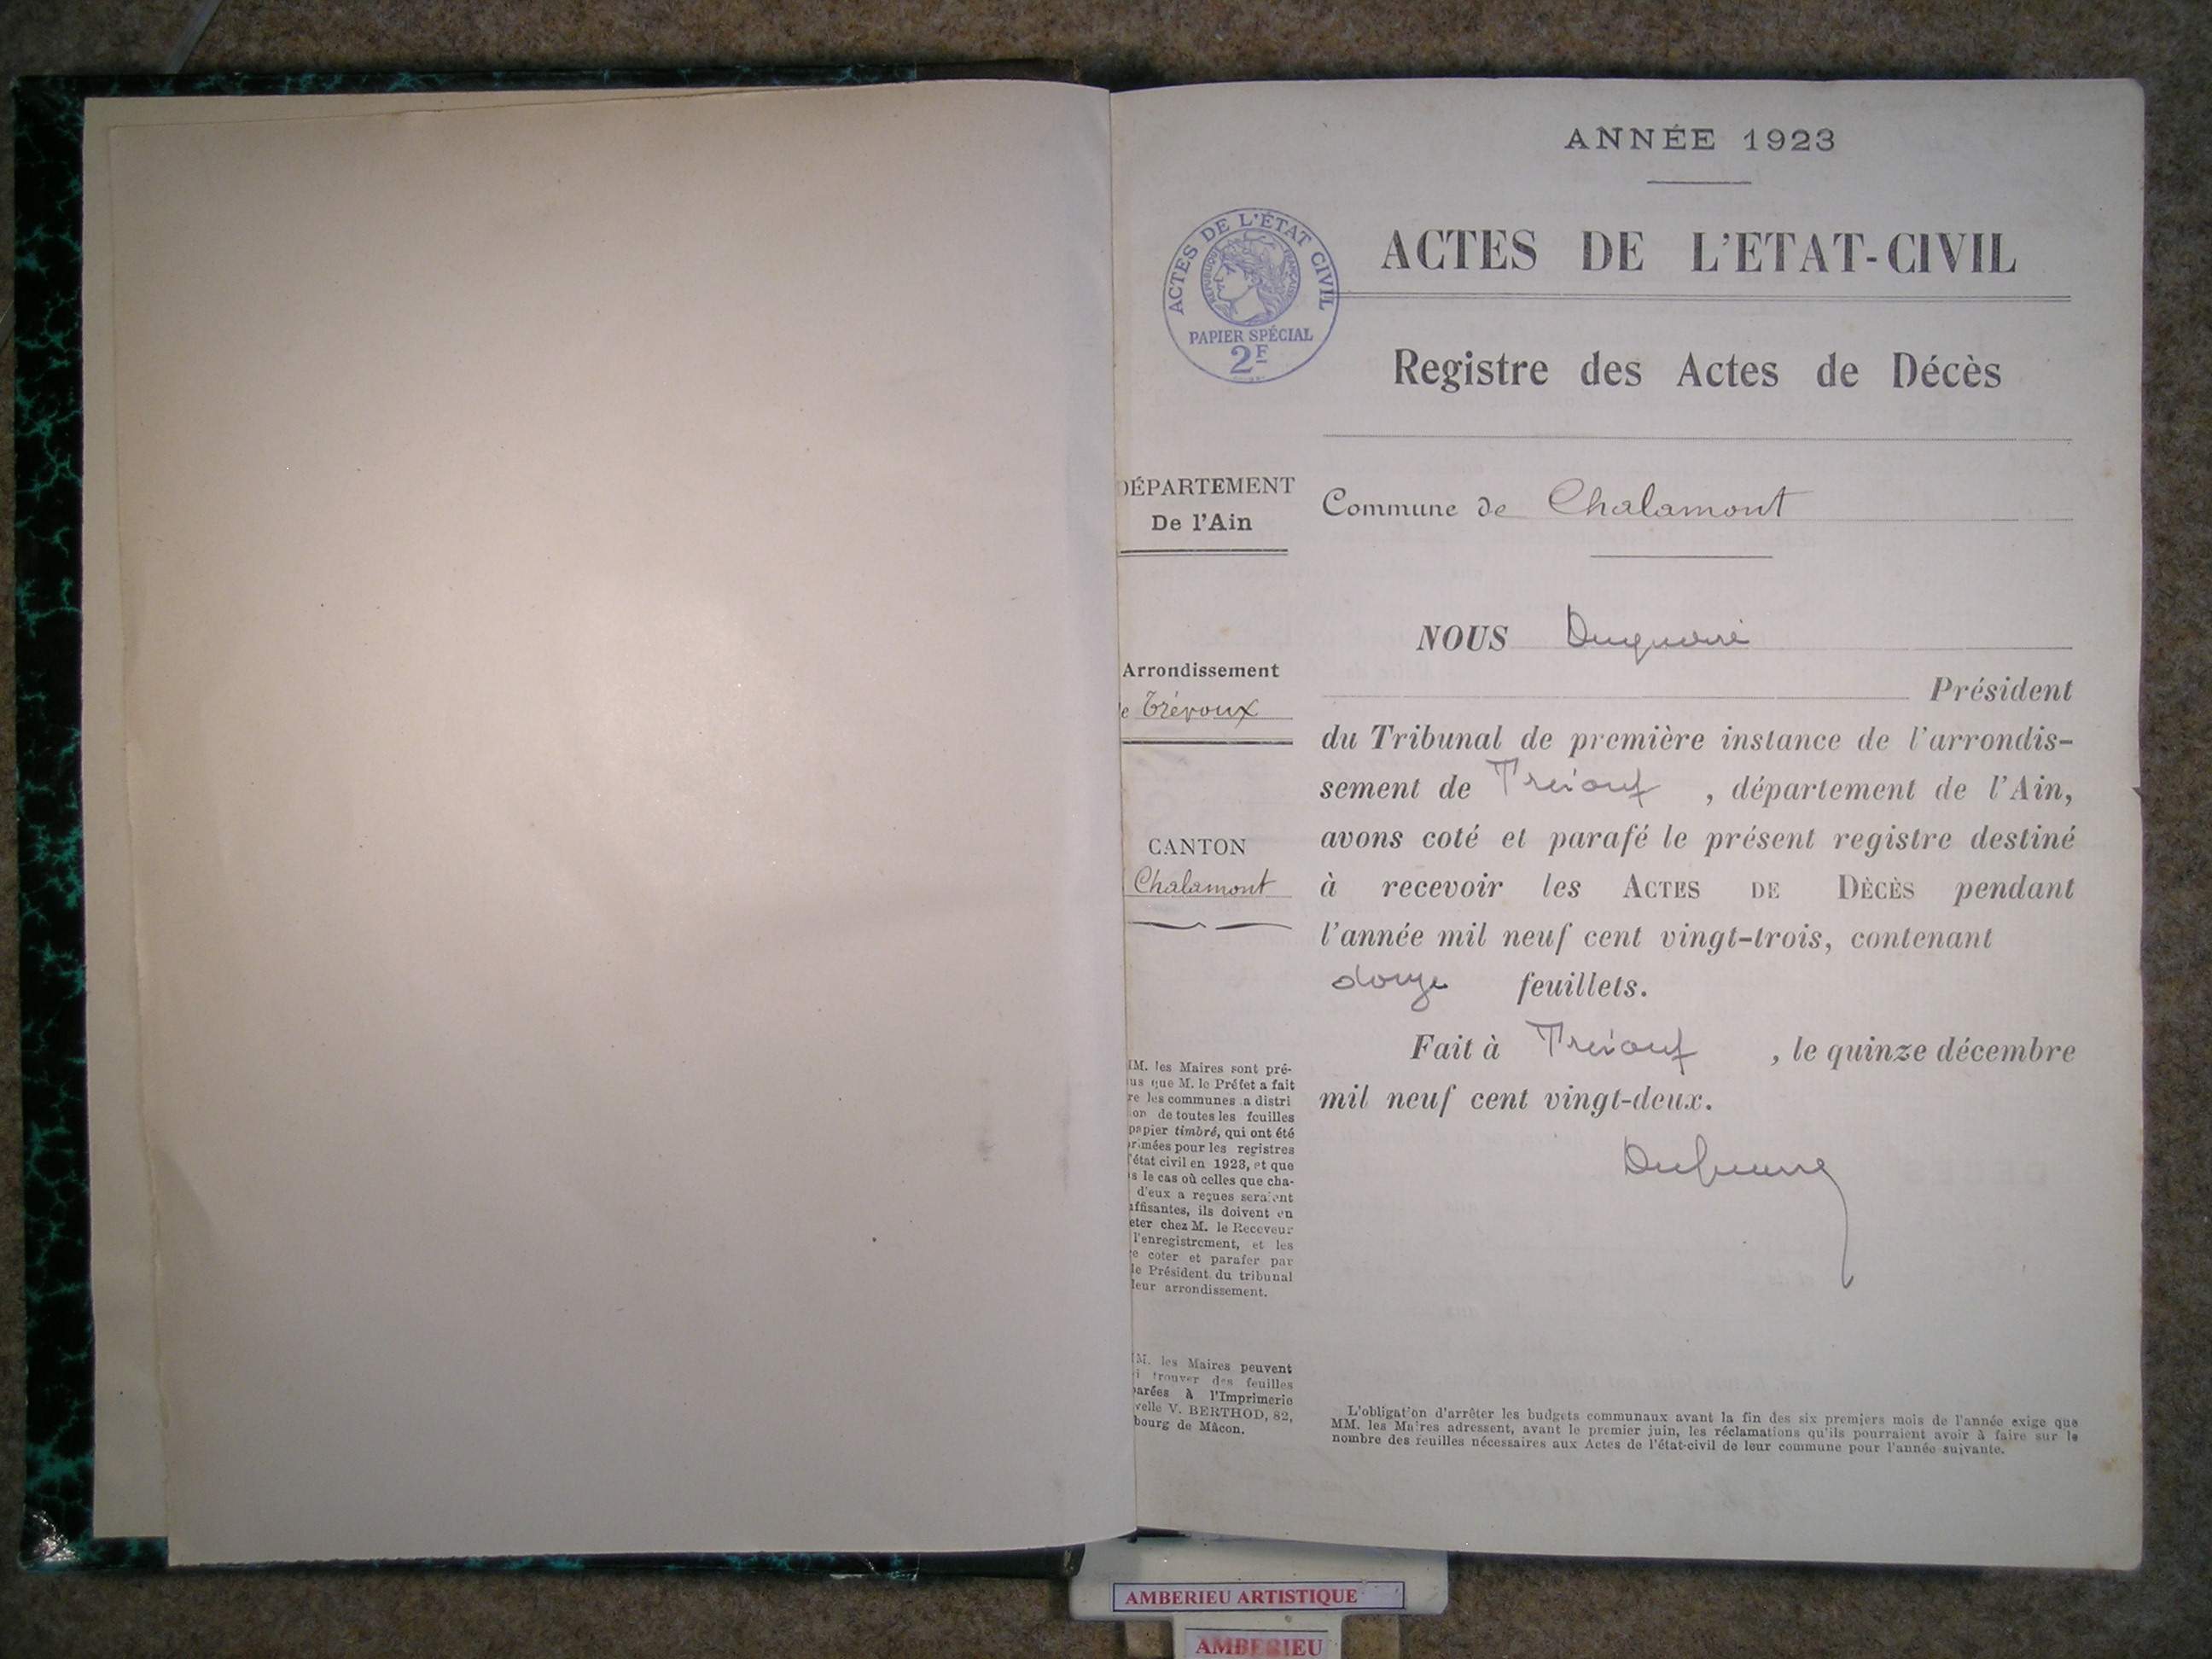 ANNÉE 1923
ACTES DE L'ÉTAT CIVIL
RÉPUBLIQUE FRANÇAISE
PAPIER SPÉCIAL
2F
ACTES DE L'ETAT-CIVIL
Registre des Actes de Décès
DÉPARTEMENT
De l'Ain
Commune de Chalamont
Arrondissement
e Trévoux
CANTON
Chalamont
NOUS
Président
du Tribunal de première instance de l'arrondis-
sement de Trévoux , département de l'Ain,
avons coté et parafé le présent registre destiné
à recevoir les ACTES DE DÈCÈS pendant
l'année mil neuf cent vingt-trois, contenant
douze feuillets.
Fait à Trévoux , le quinze décembre
mil neuf cent vingt-deux.
M. les Maires sont pré-
us que M. le Préfet a fait
re les communes a distri
on de toutes les feuilles
papier timbré, qui ont été
rimées pour les registres
'état civil en 1923, et que
s le cas où celles que cha-
d'eux a reçues seraient
ffisantes, ils doivent en
eter chez M. le Receveur
l'enregistrement, et les
e coter et parafer par
le Président du tribunal
leur arrondissement.
M. les Maires peuvent
i trouver des feuilles
parées à l'Imprimerie
velle V. BERTHOD, 82,
bourg de Mâcon.
L'obligation d'arrêter les budgets communaux avant la fin des six premiers mois de l'année exige que
MM. les Maires adressent, avant le premier juin, les réclamations qu'ils pourraient avoir à faire sur le
nombre des feuilles nécessaires aux Actes de l'état-civil de leur commune pour l'année suivante.
AMBERIEU ARTISTIQUE
AMBERIEU